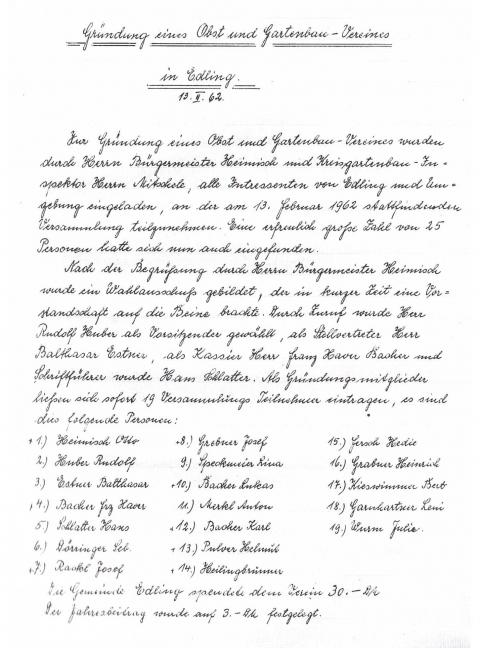 Gründung eines Obst und Gartenbau-Vereines
in Edling.
13.II.62.
Zur Gründung eines Obst und Gartenbau-Vereines wurden
durch Herrn Bürgermeister Heimisch und Kreisgartenbau-In-
spektor Herrn Nitschele, alle Intressenten von Edling und Um-
gebung eingeladen, an der am 13. Februar 1962 stattfindenden
Versammlung teilzunehmen. Eine erfreulich große Zahl von 25
Personen hatte sich nun auch eingefunden.
Nach der Begrüßung durch Herrn Bürgermeister Heimisch
wurde ein Wahlausschuß gebildet, der in kurzer Zeit eine Vor-
standschaft auf die Beine brachte. Durch Zuruf wurde Herr
Rudolf Huber als Vorsitzender gewählt, als Stellvertreter Herr
Balthasar Estner, als Kassier Herr Franz Xaver Bacher und
Schriftführer wurde Hans Schlatter. Als Gründungsmitglieder
ließen sich sofort 19 Versammlungs Teilnehmer eintragen, es sind
dies folgende Personen:
+1.) Heimisch Otto
2.) Huber Rudolf
3.) Estner Balthasar
+4.) Bacher Frz Xaver
5.) Schlatter Hans
6.) Döringer Seb.
+7.) Rackl Josef
+8.) Grebner Josef
9.) Speckmeier Lina
+10.) Bacher Lukas
11.) Merkl Anton
+12.) Bacher Karl
+13.) Pulver Helmut
+14.) Heilingbrunner
15.) Jersch Hedie
16.) Grabner Heinrich
17.) Kieswimmer Bert
18.) Garnhartner Leni
19.) Wurm Julie.
Die Gemeinde Edling spendete dem Verein 30.- DM
Der Jahresbeitrag wurde auf 3.- DM festgelegt.